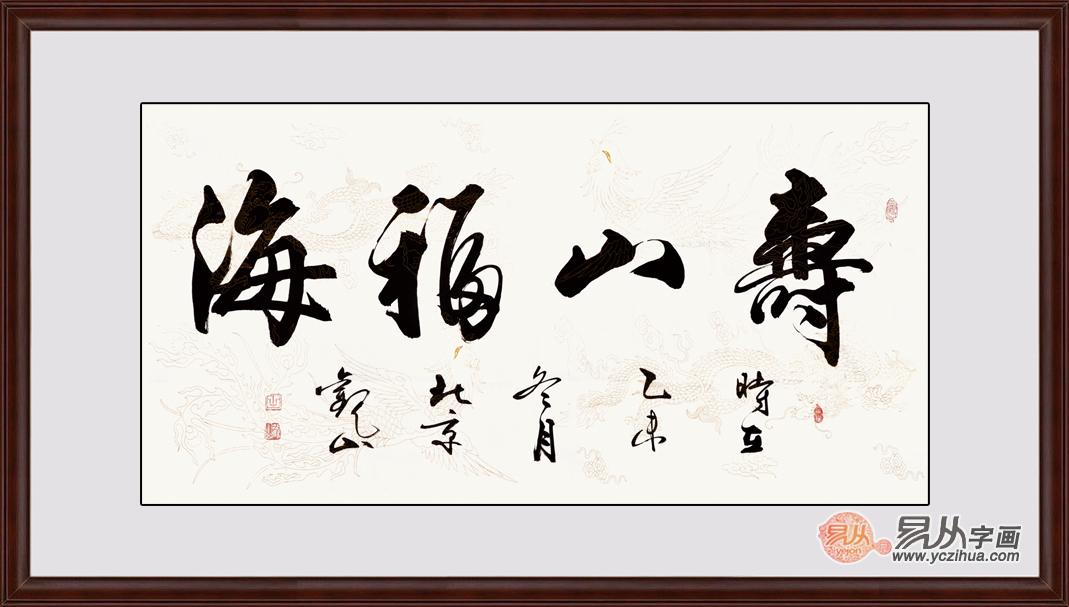 壽山福海
時在
乙未
冬月
北京
觀山
易从
yejon
易从字画
www.yczihua.com